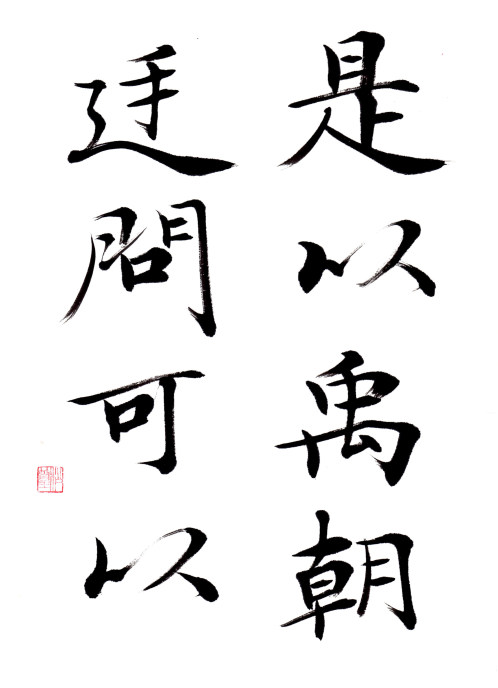 是以禹朝
廷問可以